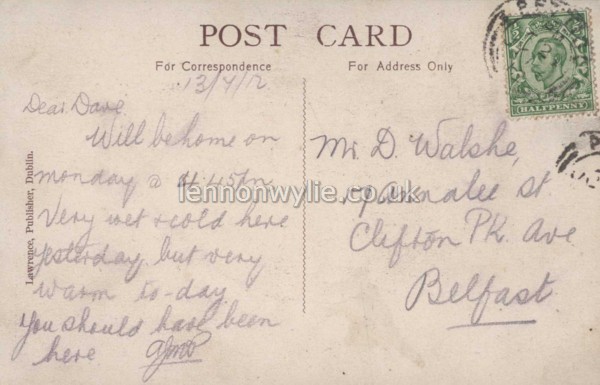 POST CARD
For Correspondence
For Address Only
HALFPENNY
Lawrence, Publisher, Dublin.
lennonwylie.co.uk
Dear Dave
Will be home on
monday @ 4.45
Very wet & cold here
yesterday but very
warm to-day
You should have been
here
Mr. D. Walshe,
Annalee st
Clifton Pk. Ave
Belfast